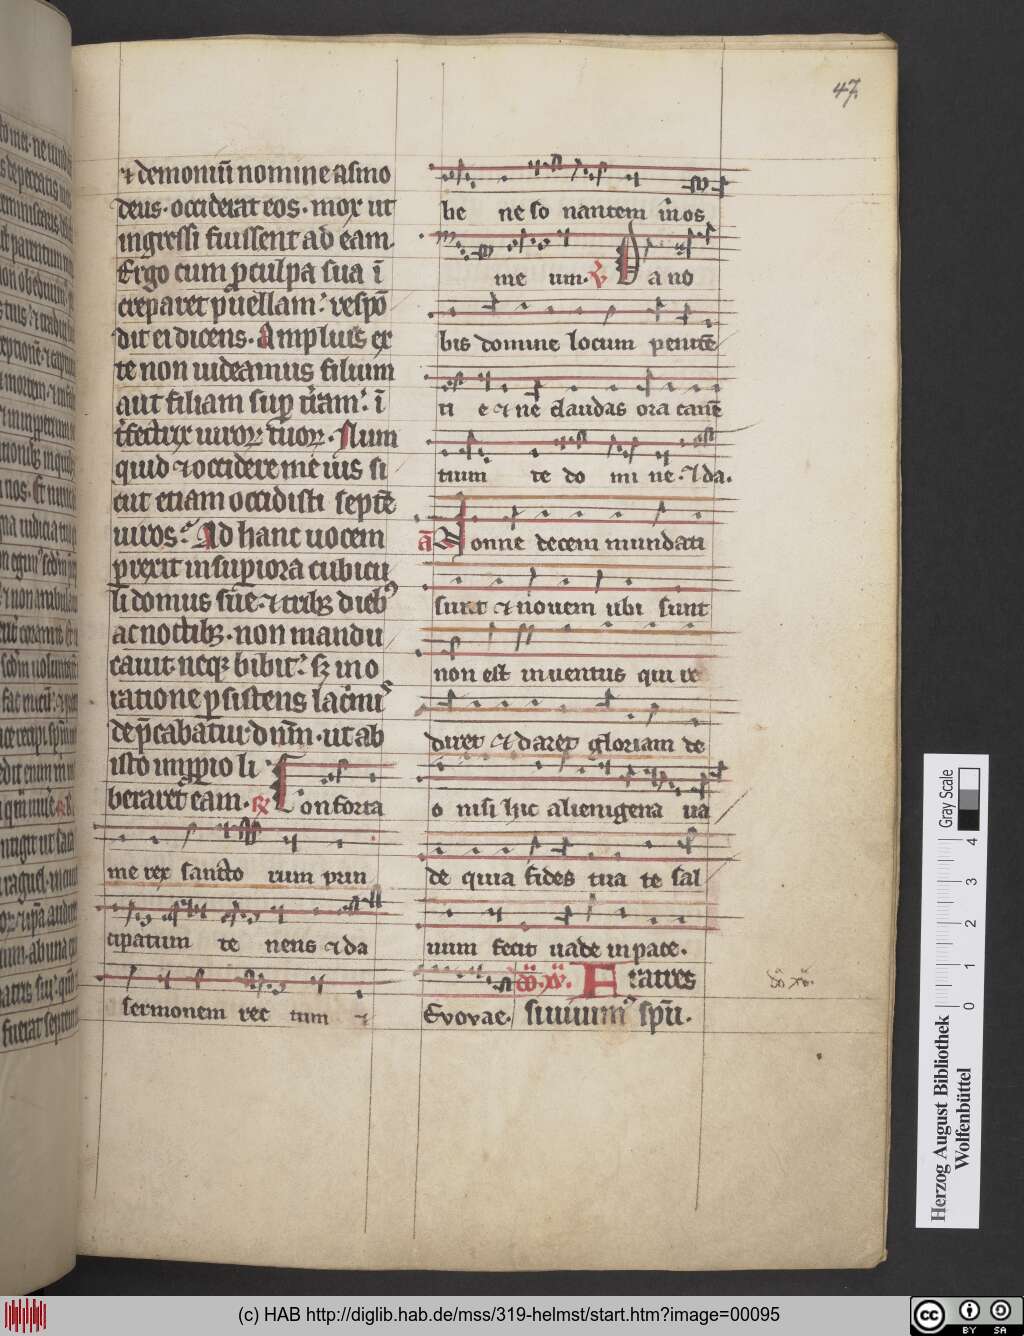 47.
⁊ demoniū nomine asmo
deus· occiderat eos· mox ut
ingressi fuissent ad eam·
Ergo cum ꝓ culpa sua ī
creparet puellam· respō
dit ei dicens· Amplius ex
te non uideamus filium
aut filiam suꝑ t̄ram· ī
t̄fectrix uiroꝝ tuoꝝ· Num
quid ⁊ occidere me uis si
cut etiam occidisti septē
uiros· Ad hanc uocem
ꝑrexit in suꝑiora cubicu
li domus sue· ⁊ tribꝫ diebꝰ
ac noctibꝫ· non mandu
cauit neqꝫ bibit· sꝫ in o
ratione ꝑsistens lac̄mis
dep̄cabatur dn̄m· ut ab
isto imꝓꝑio li
beraret eam· ℟ Conforta
me rex sancto rum prin
cipatum te nens ⁊ da
sermonem rec tum ⁊
be ne so nantem in os
me um· ℣ Da no
bis domine locum penitē
ti e ⁊ ne claudas ora canē
tium te do mi ne· ⁊ da·
a̅ Nonne decem mundati
sunt ⁊ nouem ubi sunt
non est inuentus qui re
diret ⁊ daret gloriam de
o nisi hic alienigena ua
de quia fides tua te sal
uum fecit uade in pace·
Evovae· do· xv· Fratres
si uiuimꝰ spū·
do xv·
Gray Scale
0 1 2 3 4
Herzog August Bibliothek
Wolfenbüttel
(c) HAB http://diglib.hab.de/mss/319-helmst/start.htm?image=00095
cc BY SA